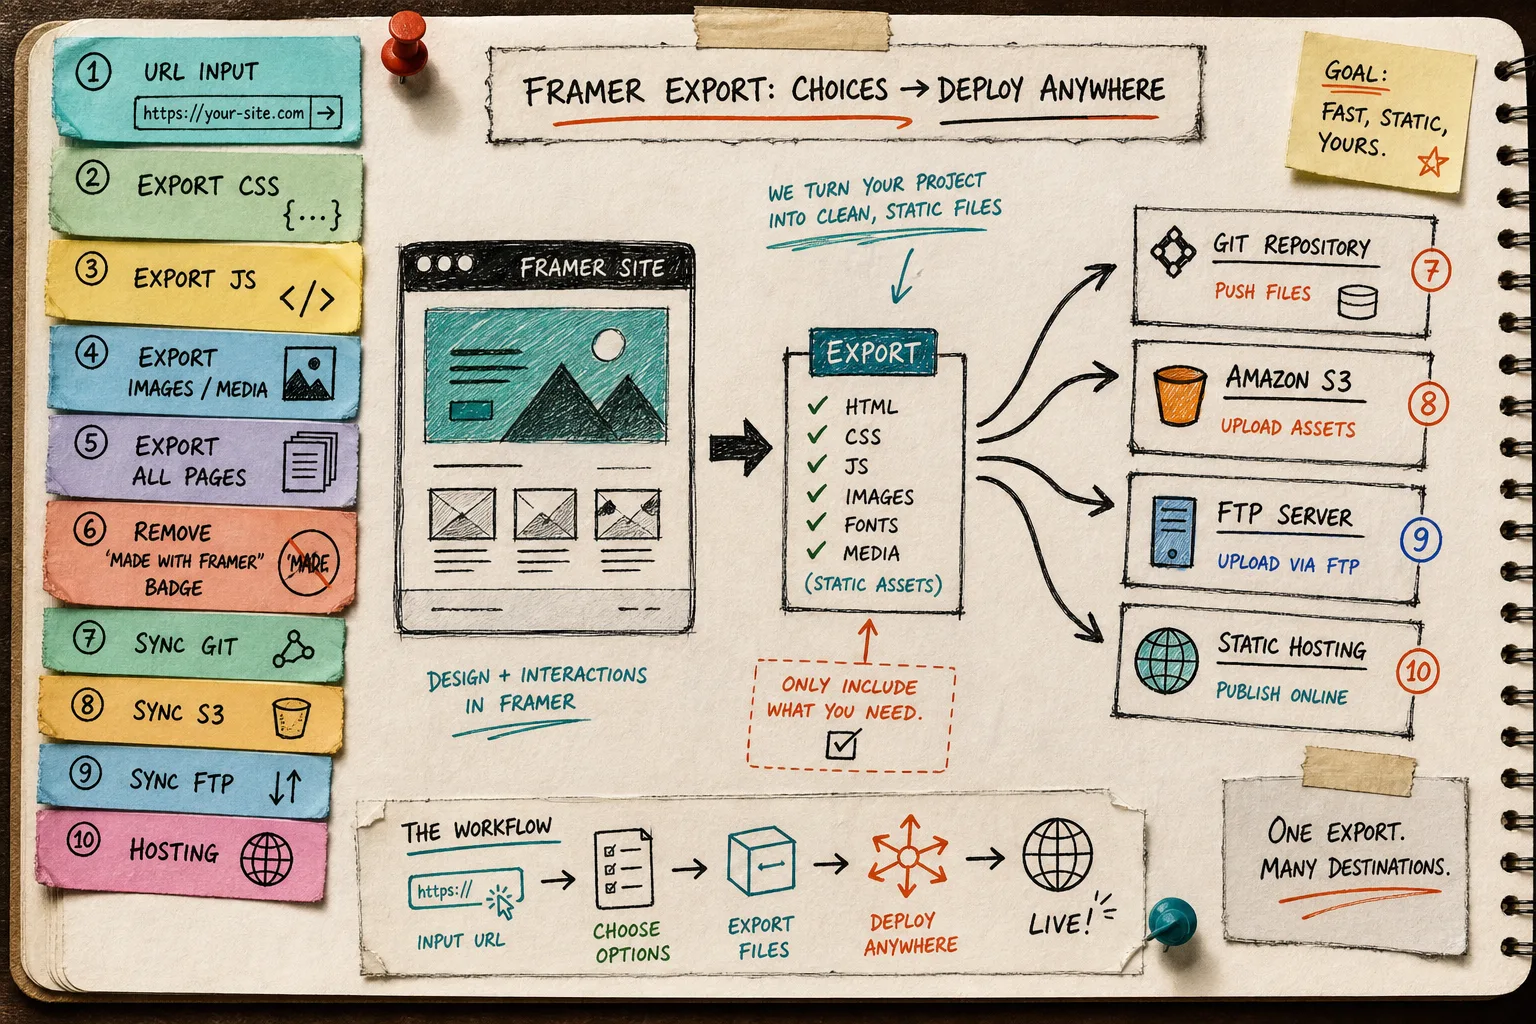 1 URL INPUT
https://your-site.com →
2 EXPORT CSS
{...}
3 EXPORT JS
</>
4 EXPORT
IMAGES / MEDIA
5 EXPORT
ALL PAGES
6 REMOVE
"MADE WITH FRAMER"
BADGE
"MADE
7 SYNC GIT
8 SYNC S3
9 SYNC FTP
10 HOSTING
FRAMER EXPORT: CHOICES → DEPLOY ANYWHERE
GOAL:
FAST, STATIC,
YOURS.
WE TURN YOUR PROJECT
INTO CLEAN, STATIC FILES
FRAMER SITE
DESIGN + INTERACTIONS
IN FRAMER
EXPORT
✓ HTML
✓ CSS
✓ JS
✓ IMAGES
✓ FONTS
✓ MEDIA
(STATIC ASSETS)
ONLY INCLUDE
WHAT YOU NEED.
GIT REPOSITORY
PUSH FILES
7
AMAZON S3
UPLOAD ASSETS
8
FTP SERVER
UPLOAD VIA FTP
9
STATIC HOSTING
PUBLISH ONLINE
10
THE WORKFLOW
https://
INPUT URL
CHOOSE
OPTIONS
EXPORT
FILES
DEPLOY
ANYWHERE
LIVE!
ONE EXPORT.
MANY DESTINATIONS.